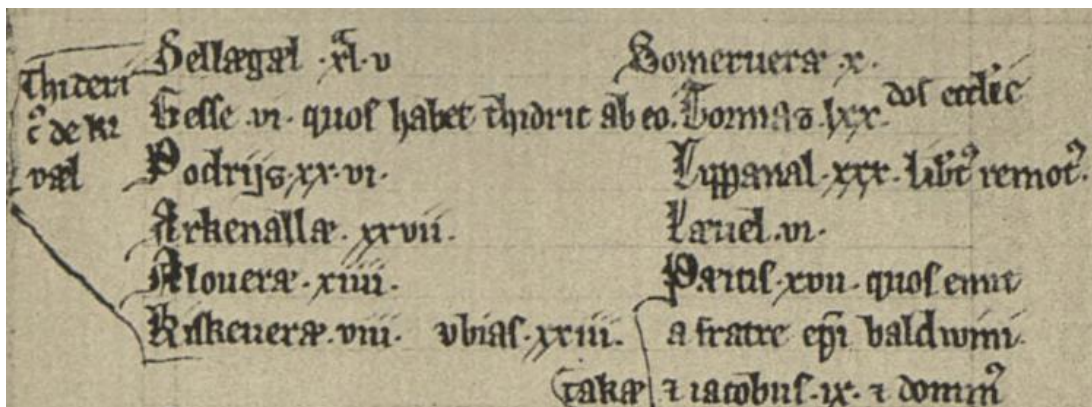 Thideric(us) de ki
væl
Hellægæl · xl · v
Gesse · vi · quos habet thidric ab eo.
Podrijs · xx · vi ·
Arkenallæ · xxvii ·
Aloueræ · xiiii ·
Kiskeueræ · viii · vbias · xxiii ·
Somerueræ · x ·
Tormas · lxx · dos eccl(es)ie
Lippanal · xxx · lib(er)t(us) remot(us)
Læuel · vi ·
Partis · xvii · quos emit
a fratre ep(iscop)i baldwini ·
takæ ⁊ iacobus · ix · ⁊ domin(us)